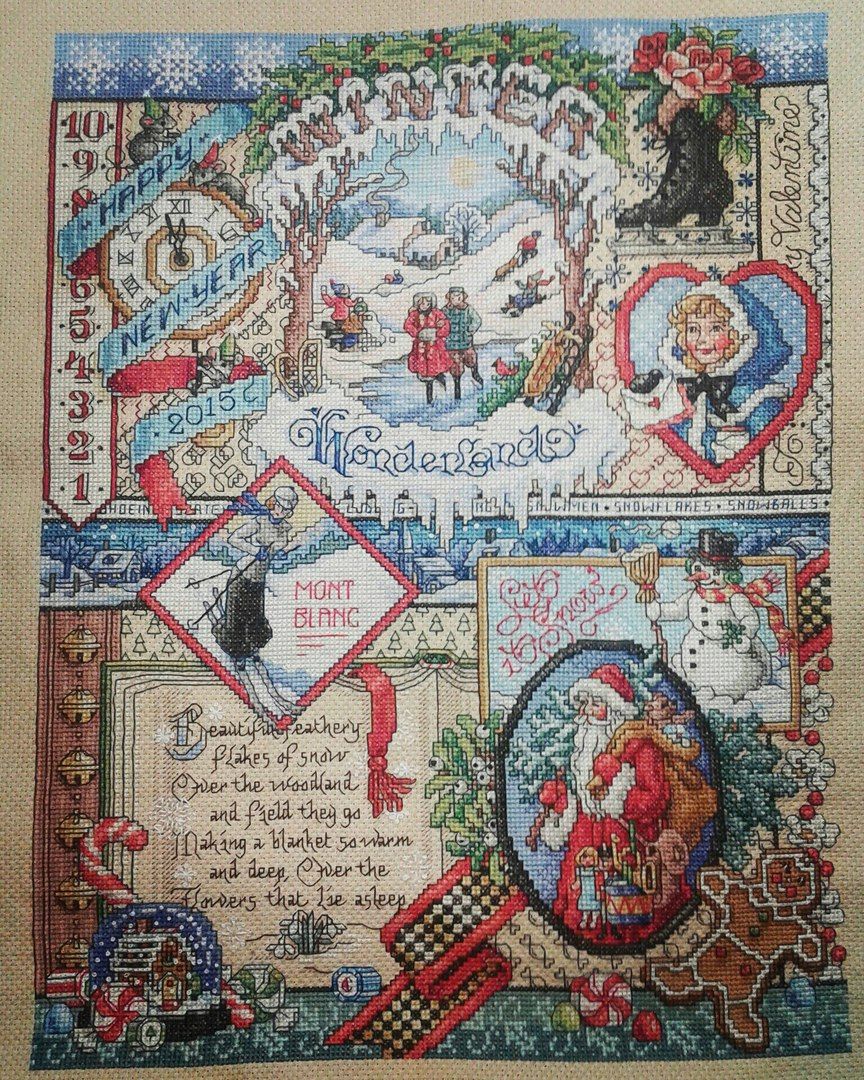 WINTER
Wonderland
HAPPY
NEW-YEAR
2015
10
9
6
5
4
3
2
1
y Valentine
SNOWFLAKES • SNOWBALLS
MONT
BLANC
Let
it
Snow
Beautiful feathery
flakes of snow
Over the woodland
and field they go
Making a blanket so warm
and deep, Over the
flowers that lie asleep